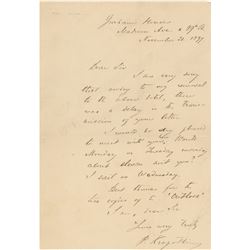 Madison Ave. & 89th St.
November 21. 1897
Dear Sir
I am very sorry
that owing to my removal
to the above hotel, there
was a delay in the trans-
mission of your letter.
I would be very pleased
to meet with you
Monday or Tuesday morning
about eleven suit you?
I sail on Wednesday.
for the
copies of the "Outlook"
I am, dear Sir
Yours very truly
P. Kropotkin